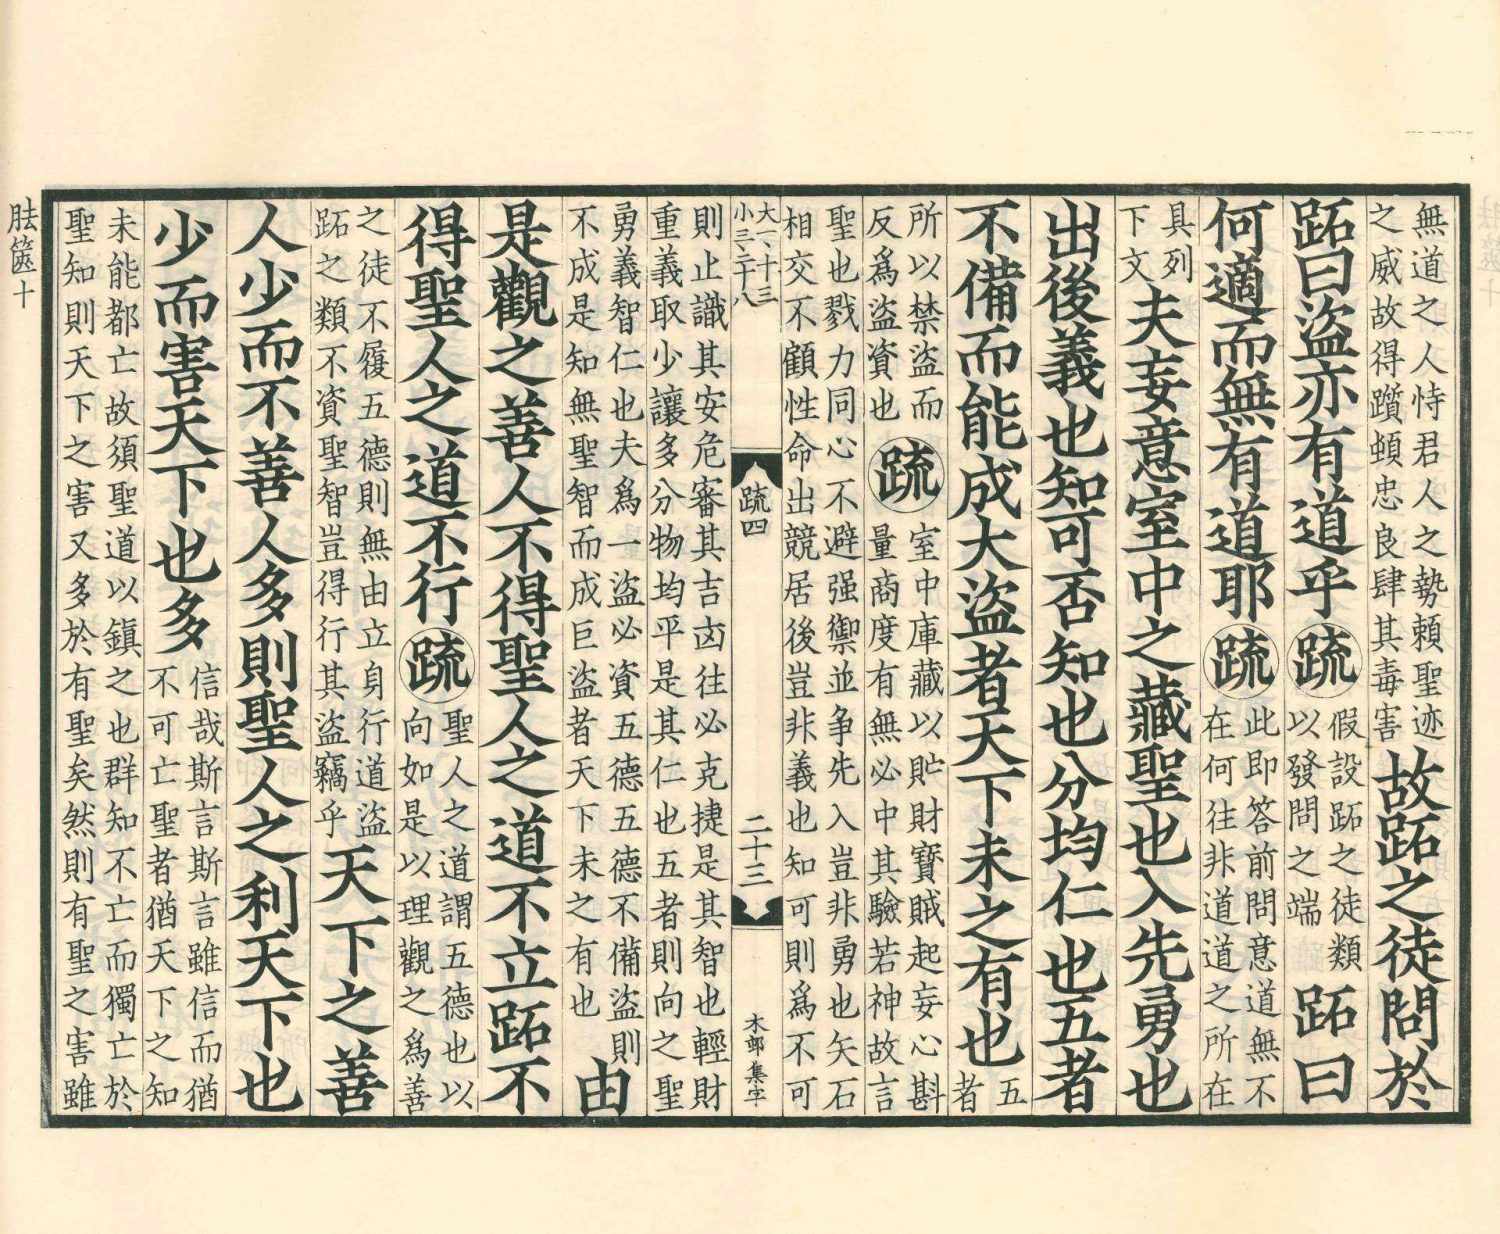 無道之人恃君人之勢賴聖迹
之威故得躓頓忠良肆其毒害
故跖之徒問於
跖曰盜亦有道乎疏
假設跖之徒類
以發問之端
跖曰
何適而無有道耶疏
此即答前問意道無不
在何往非道道之所在
具列
下文
夫妄意室中之藏聖也入先勇也
出後義也知可否知也分均仁也五者
不備而能成大盜者天下未之有也
五
者
所以禁盜而
反爲盜資也
疏
室中庫藏以貯財寶賊起妄心斟
量商度有無必中其驗若神故言
聖也戮力同心不避强禦並争先入豈非勇也矢石
相交不顧性命出競居後豈非義也知可則爲不可
大一、十三
小三、二十八
疏四
二十三
木部集字
則止識其安危審其吉凶往必克捷是其智也輕財
重義取少讓多分物均平是其仁也五者則向之聖
勇義智仁也夫爲一盜必資五德五德不備盜則
不成是知無聖智而成巨盜者天下未之有也
由
是觀之善人不得聖人之道不立跖不
得聖人之道不行疏
聖人之道謂五德也以
向如是以理觀之爲善
之徒不履五德則無由立身行道盜
跖之類不資聖智豈得行其盜竊乎
天下之善
人少而不善人多則聖人之利天下也
少而害天下也多
信哉斯言斯言雖信而猶
不可亡聖者猶天下之知
未能都亡故須聖道以鎮之也群知不亡而獨亡於
聖知則天下之害又多於有聖矣然則有聖之害雖
胠篋十